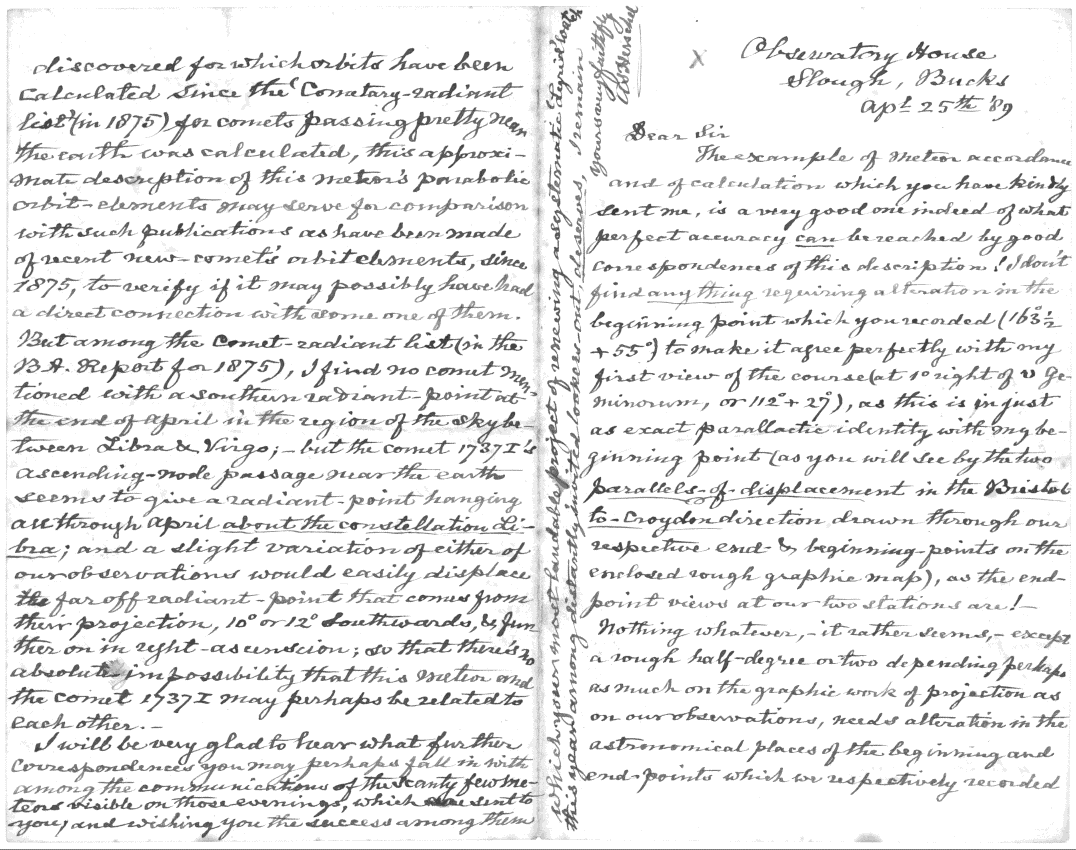 Observatory House
Slough, Bucks
Apl 25th '89
Dear Sir
The example of meteor accordance
and of calculation which you have kindly
sent me, is a very good one indeed of what
perfect accuracy can be reached by good
correspondences of this description! I don't
find anything requiring alteration in the
beginning point which you recorded (163°½
+55°) to make it agree perfectly with my
first view of the course (at 1° right of υ Ge-
minorum, or 112°+27°), as this is in just
as exact parallactic identity with my be-
ginning point (as you will see by the two
parallels-of-displacement in the Bristol-
to-Croydon direction drawn through our
respective end- & beginning-points on the
enclosed rough graphic map), as the end-
point views at our two stations are!—
Nothing whatever,- it rather seems,- except
a rough half-degree or two depending perhaps
as much on the graphic work of projection as
on our observations, needs alteration in the
astronomical places of the beginning and
end-points which we respectively recorded
discovered for which orbits have been
calculated since the 'Cometary-radiant
list' (in 1875) for comets passing pretty near
the earth was calculated, this approxi-
mate description of this meteor's parabolic
orbit-elements may serve for comparison
with such publications as have been made
of recent new-comet's orbit elements, since
1875, to verify if it may possibly have had
a direct connection with some one of them.
But among the comet-radiant list (in the
B.A. Report for 1875), I find no comet men-
tioned with a southern radiant-point at
the end of April in the region of the sky be-
tween Libra & Virgo; - but the comet 1737 I's
ascending-node passage near the earth
seems to give a radiant-point hanging
all through April about the constellation Li-
bra; and a slight variation of either of
our observations would easily displace
the far off radiant-point that comes from
their projection, 10° or 12° Southwards, & fur-
ther on in right-ascension; so that there is no
absolute impossibility that this meteor and
the comet 1737 I may perhaps be related to
each other.—
I will be very glad to hear what further
correspondences you may perhaps fall in with
among the communications of the scanty few me-
teors visible on those evenings, which are sent to
you; and wishing you the success among them
which your most laudable project of renewing a systematic Lyrid watch
this year among distantly invited lookers-out deserves, I remain
Yours very faithfully
A S Herschel